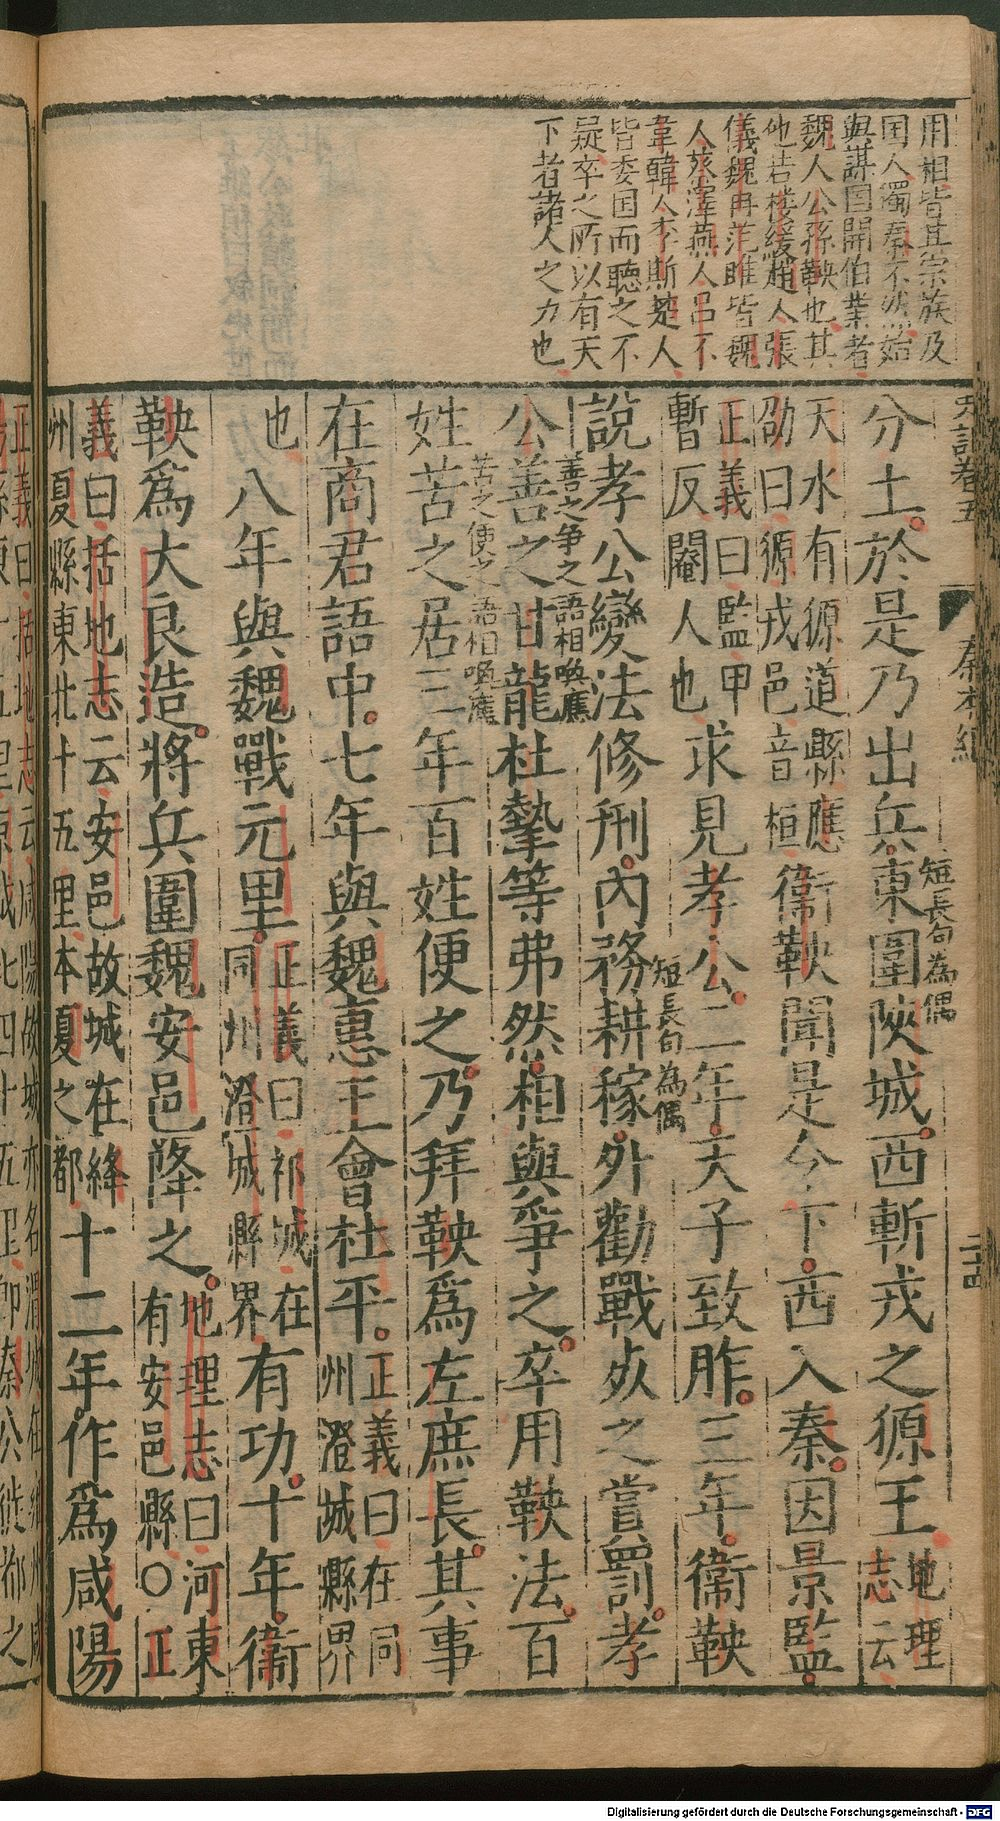 用相皆其宗族及
国人獨秦不然始
與謀国開伯業者
魏人公孫鞅也其
他若樓緩趙人張
儀魏冉范雎皆魏
人蔡澤燕人呂不
韋韓人李斯楚人
皆委国而聽之不
疑卒之所以有天
下者諸人之力也
史記卷五
秦本紀
二十四
分土於是乃出兵東圍陝城西斬戎之獂王地理
志云
短長句為偶
天水有獂道縣應
劭曰獂戎邑音桓
衞鞅聞是令下西入秦因景監
正義曰監甲
暫反閹人也
求見孝公二年天子致胙三年衞鞅
說孝公變法修刑內務耕稼外勸戰死之賞罰孝
短長句為偶
公善之甘龍杜摯等弗然相與爭之卒用鞅法百
善之争之語相喚應
姓苦之居三年百姓便之乃拜鞅爲左庶長其事
苦之使之語相喚應
在商君語中七年與魏惠王會杜平
正義曰在同
州澄城縣界
也八年與魏戰元里
正義曰祁城在
同州澄城縣界
有功十年衞
鞅爲大良造將兵圍魏安邑降之
地理志曰河東
有安邑縣○正
義曰括地志云安邑故城在絳
州夏縣東北十五里本夏之都
十二年作爲咸陽
正義曰括地志云咸陽故城亦名渭城在雍州咸
陽縣東十五里京城北四十五里卽秦孝公徙都之
Digitalisierung gefördert durch die Deutsche Forschungsgemeinschaft - DFG